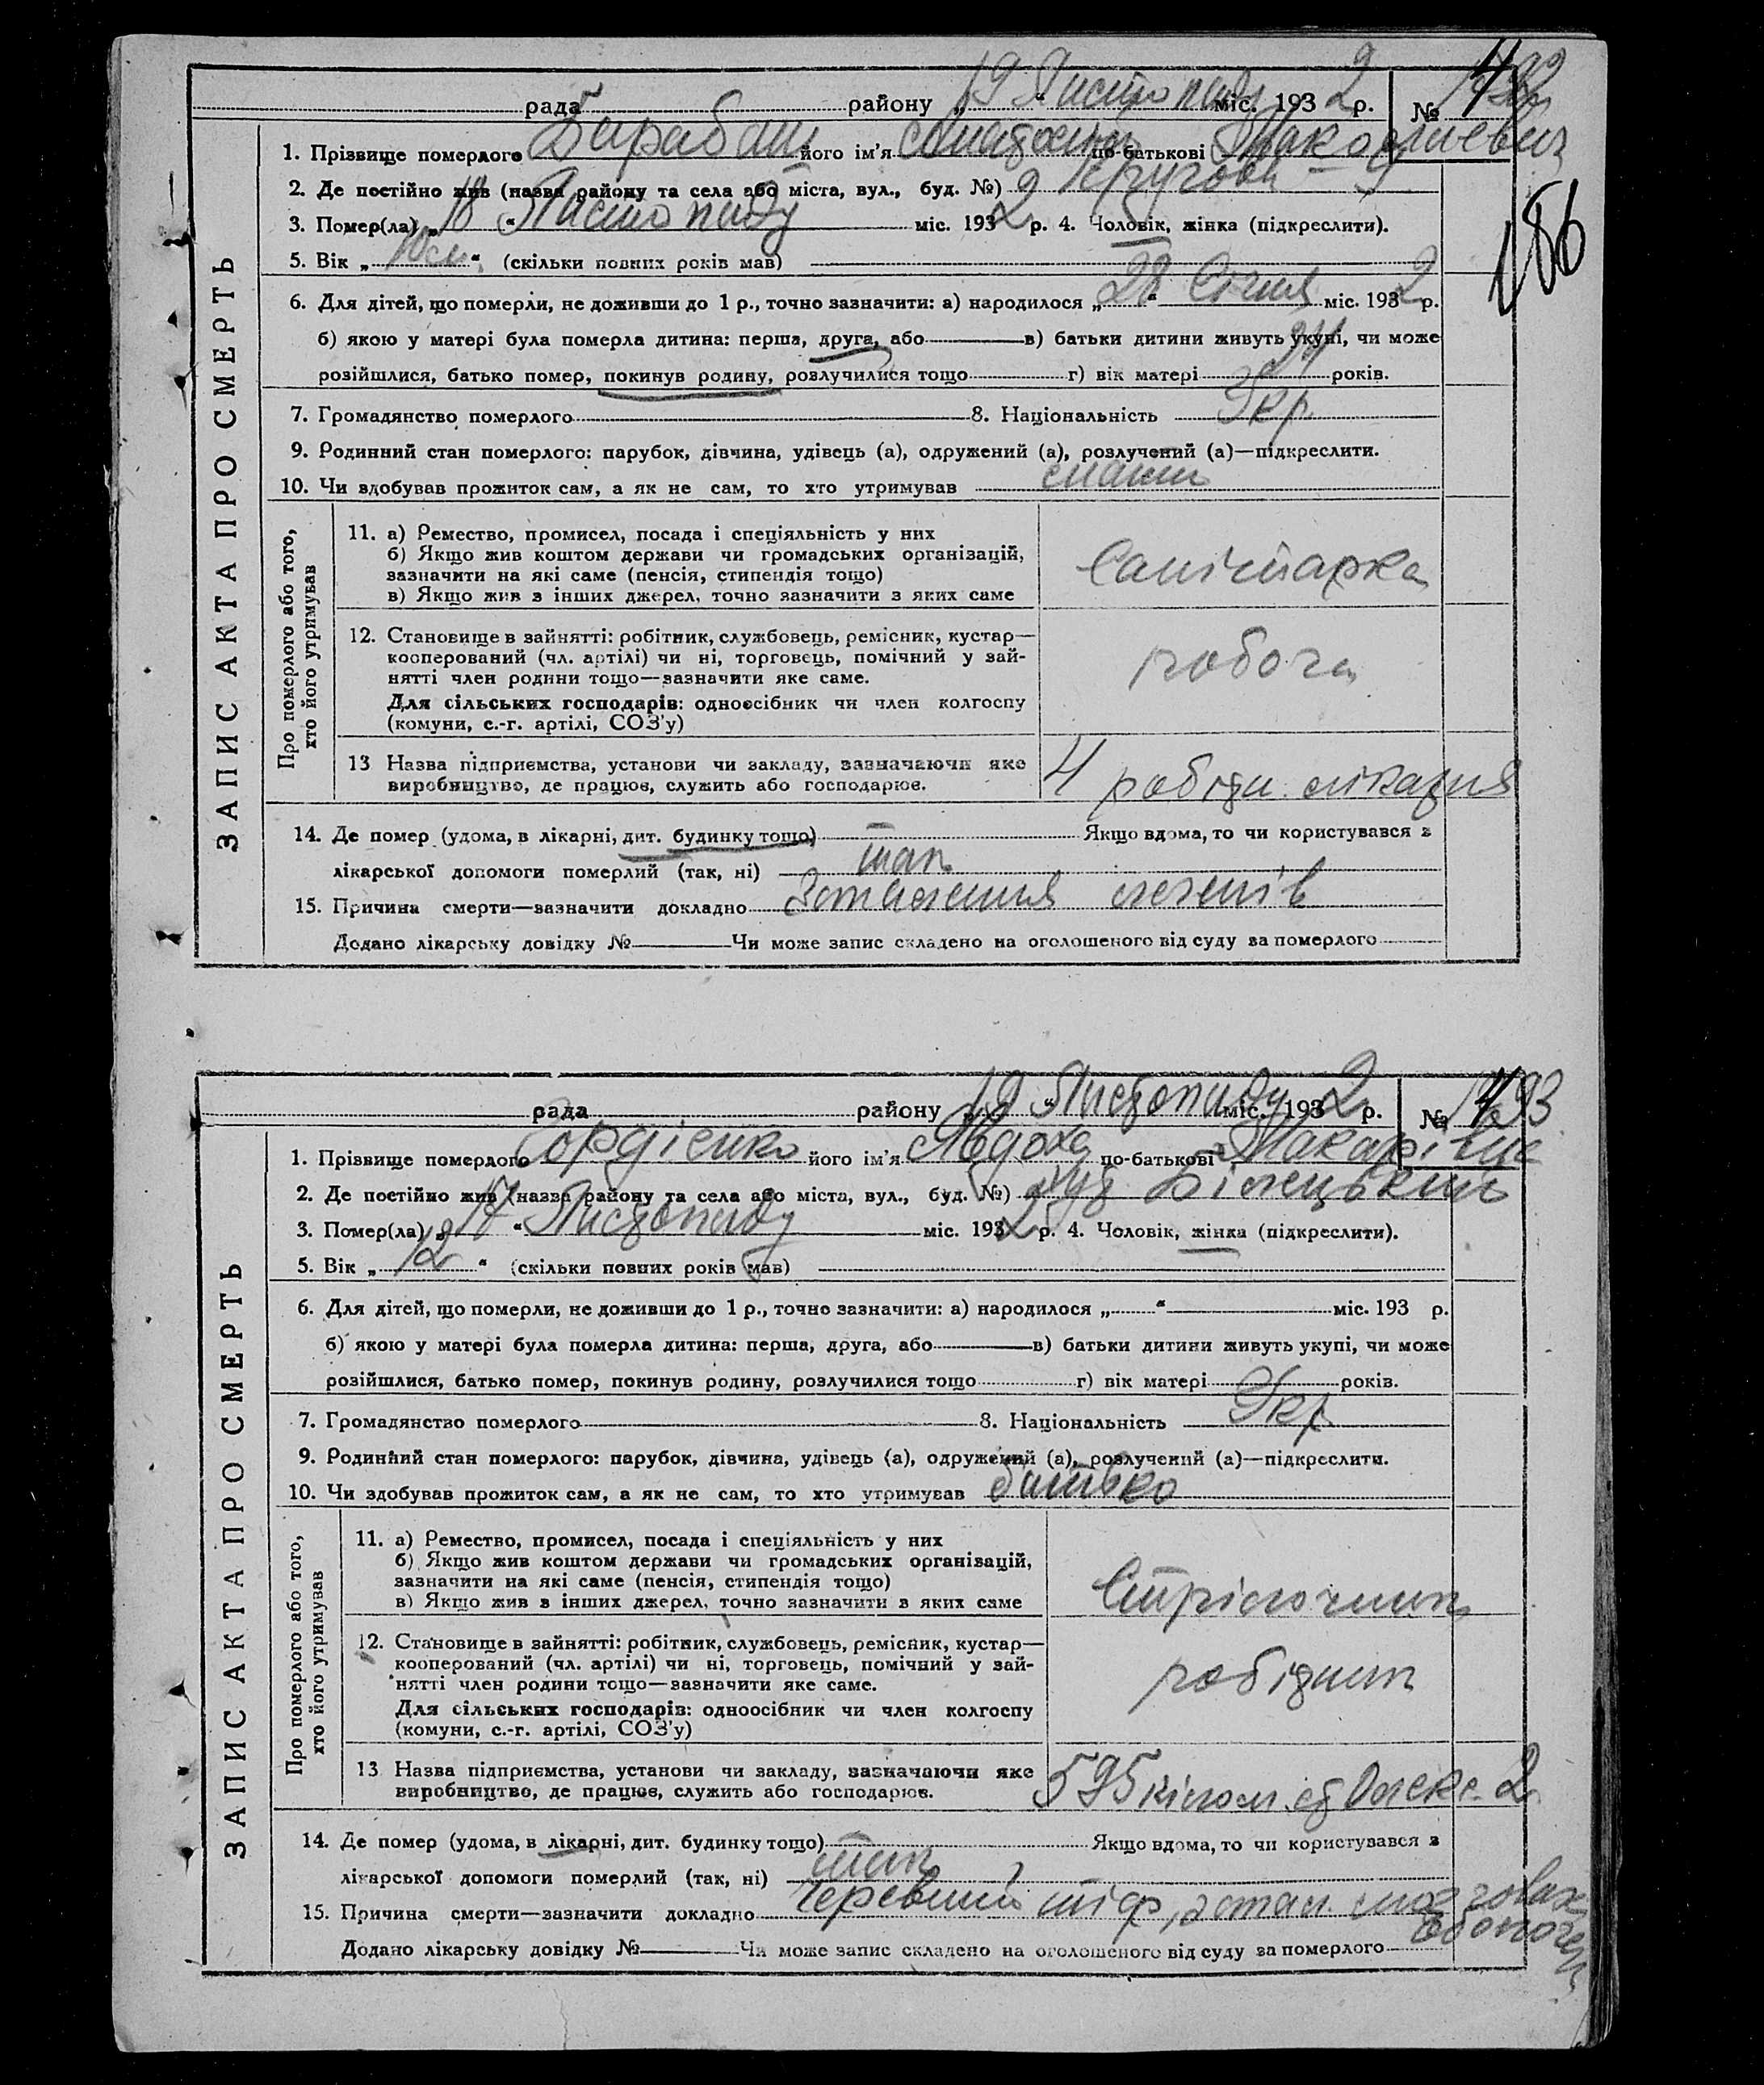 рада района „19“ Листопада міс. 1932 р. № 1492
1. Прізвище померлого Барабаш його ім’я Анатолий по-батькові
2. Де постійно жив (назва району та села або міста, вул., буд. №) 2 Кругова – 9
3. Помер(ла) „18“ Листопаду міс. 1932 р. 4. Чоловік, жінка (підкреслити).
186
5. Вік „10 м.“ (скільки повних років мав)
6. Для дітей, що померли, не доживши до 1 р., точно зазначити: а) народилося „28“ Січня міс. 1932 р.
б) якою у матері була померла дитина: перша, друга, або в) батьки дитини живуть укупі, чи може
розійшлися, батько помер, покинув родину, розлучилися тощо г) вік матері 24 років.
7. Громадянство померлого 8. Національність Укр.
9. Родинний стан померлого: парубок, дівчина, удівець (а), одружений (а), розлучений (а)—підкреслити.
10. Чи здобував прожиток сам, а як не сам, то хто утримував мати
ЗАПИС АКТА ПРО СМЕРТЬ
Про померлого або того, хто його утримував
11. а) Ремество, промисел, посада і спеціяльність у них
б) Якщо жив коштом держави чи громадських організацій,
зазначити на які саме (пенсія, стипендія тощо)
в) Якщо жив з інших джерел, точно зазначити з яких саме
Санітарка
12. Становище в зайнятті: робітник, службовець, ремісник, кустар—
кооперований (чл. артілі) чи ні, торговець, помічний у зай-
нятті член родини тощо—зазначити яке саме.
Для сільських господарів: одноосібник чи член колгоспу
(комуни, с.-г. артілі, СОЗ’у)
робоча
13 Назва підприємства, установи чи закладу, зазначаючи яке
виробництво, де працює, служить або господарює.
4 робітн. лікарня
14. Де помер (удома, в лікарні, дит. будинку тощо) Якщо вдома, то чи користувався з
лікарської допомоги померлий (так, ні) так
15. Причина смерти—зазначити докладно Запалення легенів
Додано лікарську довідку № Чи може запис складено на оголошеного від суду за померлого
рада району „19“ Листопаду міс. 1932 р. № 1493
1. Прізвище померлого Гордієнко його ім’я Явдоха по-батькові Макарівна
2. Де постійно жив (назва району та села або міста, вул., буд. №) хут Білецький
3. Помер(ла) „17“ Листопаду міс. 1932 р. 4. Чоловік, жінка (підкреслити).
5. Вік „12“ (скільки повних років мав)
6. Для дітей, що померли, не доживши до 1 р., точно зазначити: а) народилося „ “ міс. 193 р.
б) якою у матері була померла дитина: перша, друга, або в) батьки дитини живуть укупі, чи може
розійшлися, батько помер, покинув родину, розлучилися тощо г) вік матері років.
7. Громадянство померлого 8. Національність Укр
9. Родинний стан померлого: парубок, дівчина, удівець (а), одружений (а), розлучений (а)—підкреслити.
10. Чи здобував прожиток сам, а як не сам, то хто утримував батько
ЗАПИС АКТА ПРО СМЕРТЬ
Про померлого або того, хто його утримував
11. а) Ремество, промисел, посада і спеціяльність у них
б) Якщо жив коштом держави чи громадських організацій,
зазначити на які саме (пенсія, стипендія тощо)
в) Якщо жив з інших джерел, точно зазначити з яких саме
Стрілочник
12. Становище в зайнятті: робітник, службовець, ремісник, кустар—
кооперований (чл. артілі) чи ні, торговець, помічний у зай-
нятті член родини тощо—зазначити яке саме.
Для сільських господарів: одноосібник чи член колгоспу
(комуни, с.-г. артілі, СОЗ’у)
робітник
13 Назва підприємства, установи чи закладу, зазначаючи яке
виробництво, де працює, служить або господарює.
595 кілом. ст Олекс. 2
14. Де помер (удома, в лікарні, дит. будинку тощо) Якщо вдома, то чи користувався з
лікарської допомоги померлий (так, ні) так
15. Причина смерти—зазначити докладно Черевний тіф, запал. мозгових оболочен
Додано лікарську довідку № Чи може запис складено на оголошеного від суду за померлого